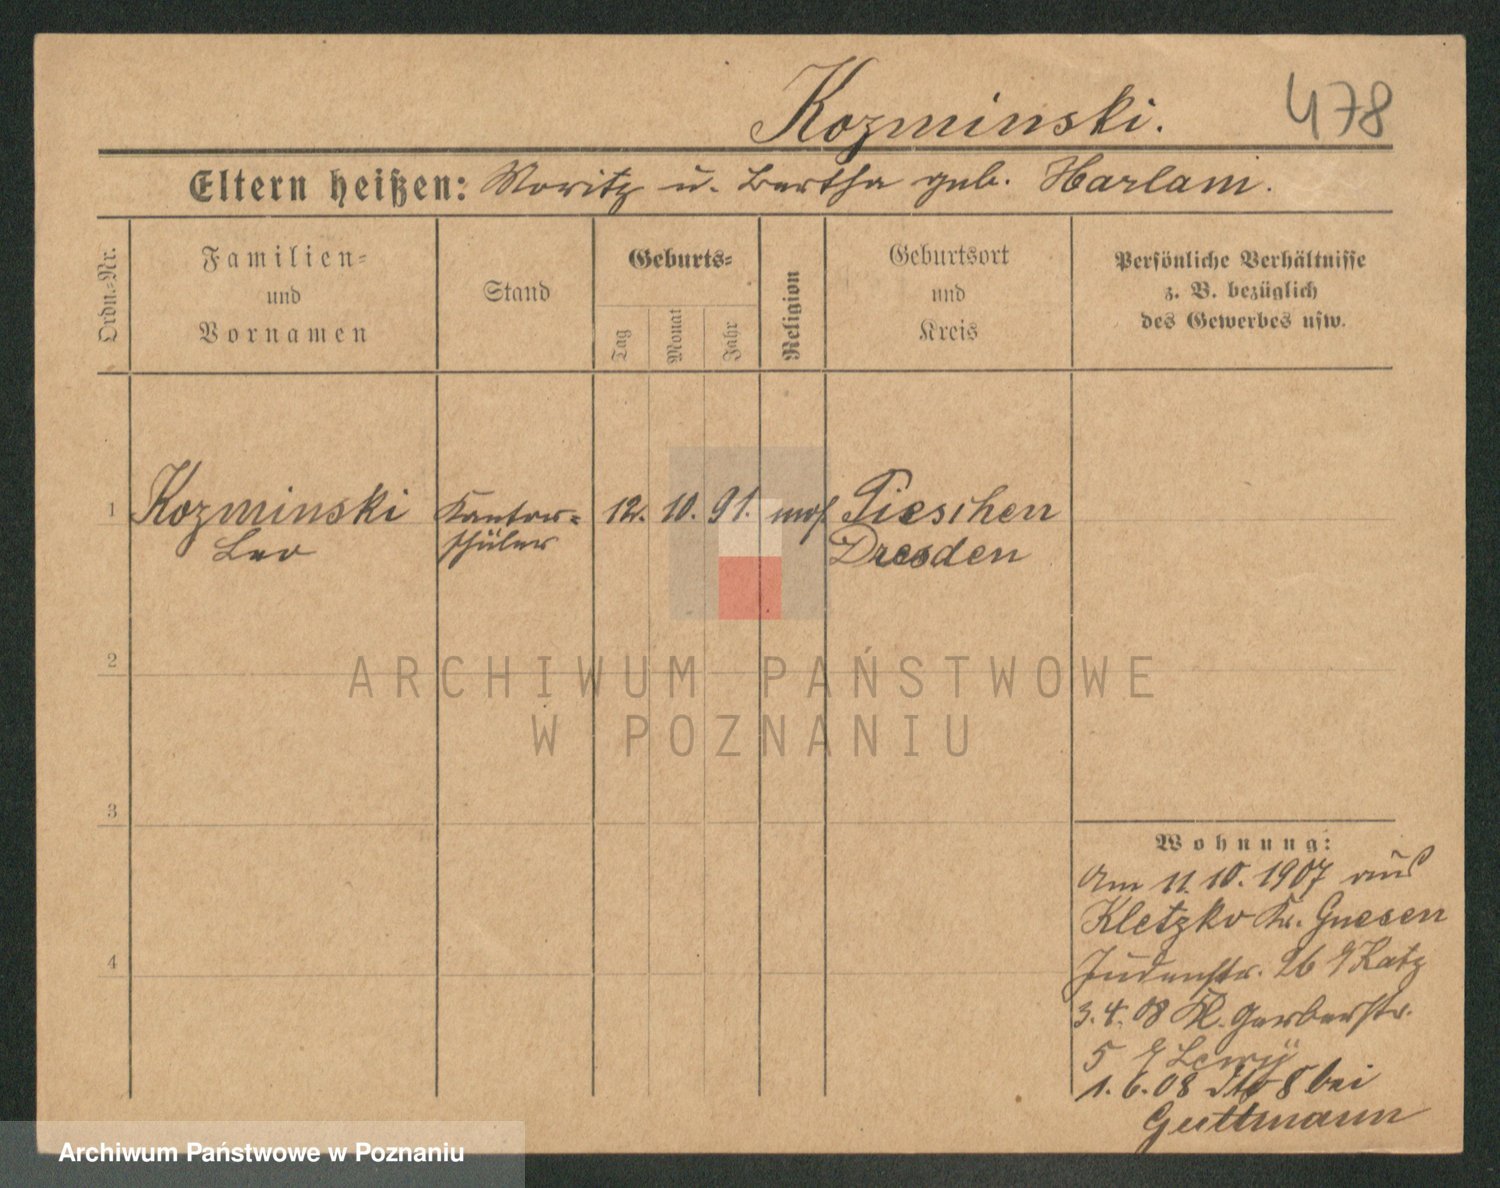 Kozminski.
478
Eltern heißen: Moritz u. Bertha geb. Harlam.
Ordn.-Nr.
Familien-
und
Vornamen
Stand
Geburts-
Tag
Monat
Jahr
Religion
Geburtsort
und
Kreis
Persönliche Verhältnisse
z. B. bezüglich
des Gewerbes usw.
1 Kozminski Kantor- 12. 10. 91. mos. Pieschen
Leo schüler Dresden
2
ARCHIWUM PAŃSTWOWE
W POZNANIU
3
Wohnung:
Am 11.10.1907 aus
Kletzko Kr. Gnesen
4
Judenstr. Katz
3.4.08 Kl. Gerberstr.
5 Lewy
1.6.08 8 bei
Guttmann
Archiwum Państwowe w Poznaniu